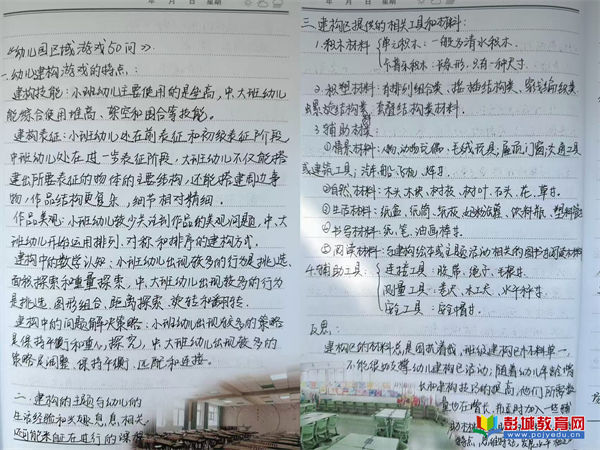 年 月 日 星期
《幼儿园区域游戏50问》
一.幼儿建构游戏的特点:
建构技能:小班幼儿主要使用的是垒高,中、大班幼儿
能综合使用堆高、架空和围合等技能。
建构表征:小班幼儿处在前表征和初级表征阶段,
中班幼儿处在进一步表征阶段,大班幼儿不仅能搭
建出所要表征的物体的主要结构,还能搭建周边事
物,作品结构更复杂,细节相对精细。
作品美观:小班幼儿较少关注到作品的美观问题,中、大
班幼儿开始运用排列、对称和排序的建构方式。
建构中的数学认知:小班幼儿出现较多的行为是挑选、
面积探索和重量探索,中、大班幼儿出现较多的行为
是挑选、图形组合、距离探索、旋转和翻转。
建构中的问题解决策略:小班幼儿出现较多的策略
是保持平衡和重心探究,中、大班幼儿出现较多的
策略是调整、保持平衡、匹配和连接。
二.建构的主题与幼儿的
生活经验和兴趣息息相关,
可能来源于正在进行的课程
年 月 日 星期
三.建构区提供的相关工具和材料:
1.积木材料 单元积木:一般为清水积木.
卡普乐积木:长条形,只有一种尺寸.
2.积塑材料:有排列组合类、接插结构类、
螺旋结构类、
结构类材料.
3.辅助材料:
①情景材料:人物、动物玩偶、毛绒玩具;屋顶门窗、交通工具
或建筑工具;汽车、船、飞机、
②自然材料:木头、木块、树枝、树叶、石头、花、草等.
③生活材料:纸盒、纸筒、纸板、奶粉罐、饮料瓶、塑料管
④书写材料:纸、笔、油画棒等.
⑤阅读材料:与建构绘本或主题活动相关的图书
4.辅助工具: 连接工具:胶带、绳子、毛根等.
测量工具:卷尺、木工尺、水平
安全工具:安全帽等.
反思:
建构区的材料总是困扰着我,班级建构区材料单一,
不能很好支撑幼儿建构区活动;随着幼儿年龄增
长和建构技巧的提高,他们所需数
量也在增长,
加入一些辅
助材料
特点,
彭城教育网
www.pcjyedu.cn